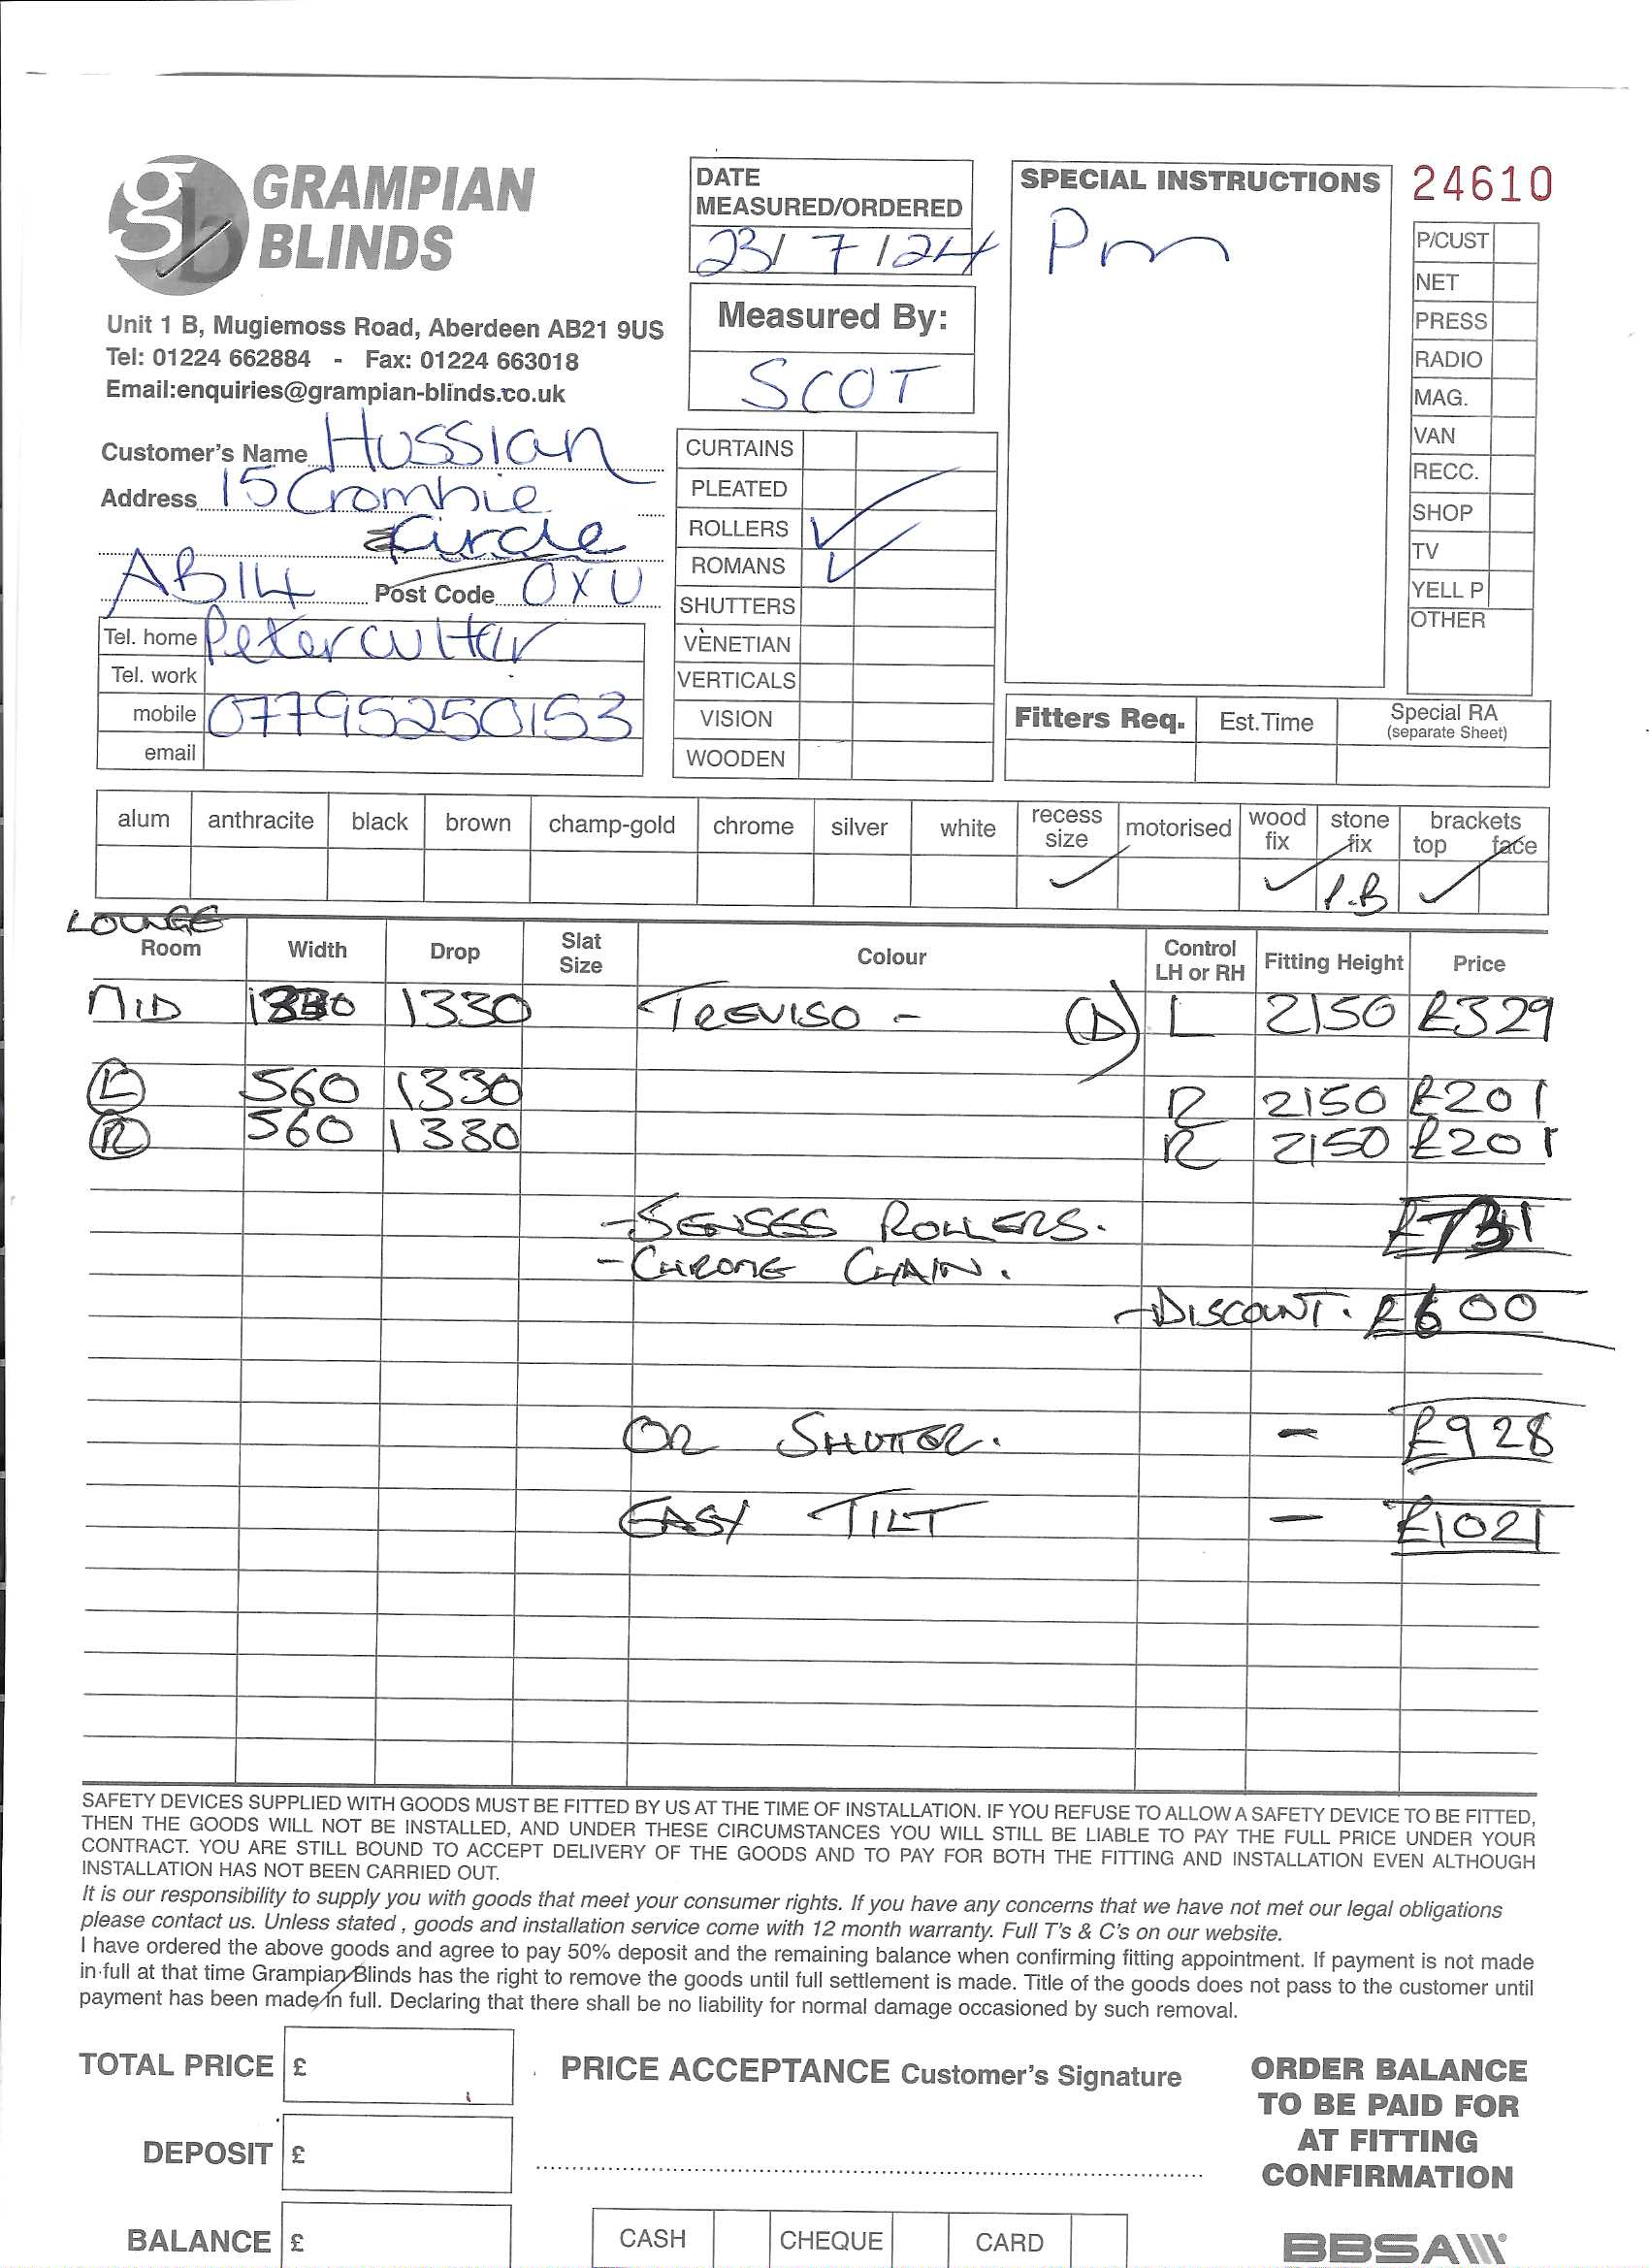 GRAMPIAN
BLINDS
Unit 1 B, Mugiemoss Road, Aberdeen AB21 9US
Tel: 01224 662884 - Fax: 01224 663018
Email:enquiries@grampian-blinds.co.uk
DATE
MEASURED/ORDERED
23/7/24
Measured By:
SCOT
SPECIAL INSTRUCTIONS
Pm
24610
P/CUST
NET
PRESS
RADIO
MAG.
VAN
RECC.
SHOP
TV
YELL P
OTHER
Customer's Name Hussian
Address 15 Crombie
Circle
AB14 Post Code 0XU
Tel. home Peterculter
Tel. work
mobile 07795250153
email
CURTAINS
PLEATED
ROLLERS ✓
ROMANS ✓
SHUTTERS
VENETIAN
VERTICALS
VISION
WOODEN
Fitters Req. Est.Time Special RA
(separate Sheet)
alum anthracite black brown champ-gold chrome silver white recess size motorised wood fix stone fix brackets top face
✓ ✓ P.B ✓
LOUNGE
Room Width Drop Slat Size Colour Control LH or RH Fitting Height Price
MID 1330 TREVISO - (D) L 2150 £329
(L) 560 1330 R 2150 £201
(R) 560 1330 R 2150 £201
-SENSES ROLLERS. £731
-CHROME CHAIN.
-DISCOUNT. £600
OR SHUTTER. - £928
EASY TILT - £1021
SAFETY DEVICES SUPPLIED WITH GOODS MUST BE FITTED BY US AT THE TIME OF INSTALLATION. IF YOU REFUSE TO ALLOW A SAFETY DEVICE TO BE FITTED,
THEN THE GOODS WILL NOT BE INSTALLED, AND UNDER THESE CIRCUMSTANCES YOU WILL STILL BE LIABLE TO PAY THE FULL PRICE UNDER YOUR
CONTRACT. YOU ARE STILL BOUND TO ACCEPT DELIVERY OF THE GOODS AND TO PAY FOR BOTH THE FITTING AND INSTALLATION EVEN ALTHOUGH
INSTALLATION HAS NOT BEEN CARRIED OUT.
It is our responsibility to supply you with goods that meet your consumer rights. If you have any concerns that we have not met our legal obligations
please contact us. Unless stated , goods and installation service come with 12 month warranty. Full T's & C's on our website.
I have ordered the above goods and agree to pay 50% deposit and the remaining balance when confirming fitting appointment. If payment is not made
in full at that time Grampian Blinds has the right to remove the goods until full settlement is made. Title of the goods does not pass to the customer until
payment has been made in full. Declaring that there shall be no liability for normal damage occasioned by such removal.
TOTAL PRICE £
DEPOSIT £
BALANCE £
PRICE ACCEPTANCE Customer's Signature
CASH CHEQUE CARD
ORDER BALANCE
TO BE PAID FOR
AT FITTING
CONFIRMATION
BBSA